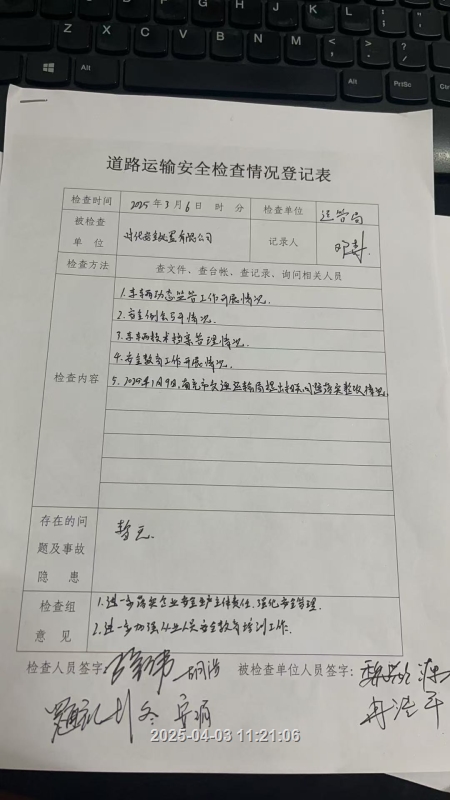 Z X C V B N M
Alt Alt PrtSc Ctrl
道路运输安全检查情况登记表
检查时间 2025年3月6日 时 分 检查单位 运管局
被检查单位 有限公司 记录人
检查方法 查文件、查台帐、查记录、询问相关人员
检查内容
1.车辆动态监管工作开展情况.
2.安全例会召开情况.
3.车辆技术档案管理情况.
4.安全教育工作开展情况.
5.2025年1月9日,南充市交通运输局提出相关问题落实整改情况.
存在的问题及事故隐患 暂无.
检查组意见
1.进一步落实企业安全生产主体责任,强化安全管理.
2.进一步加强从业人员安全教育培训工作.
检查人员签字: 被检查单位人员签字:
2025-04-03 11:21:06